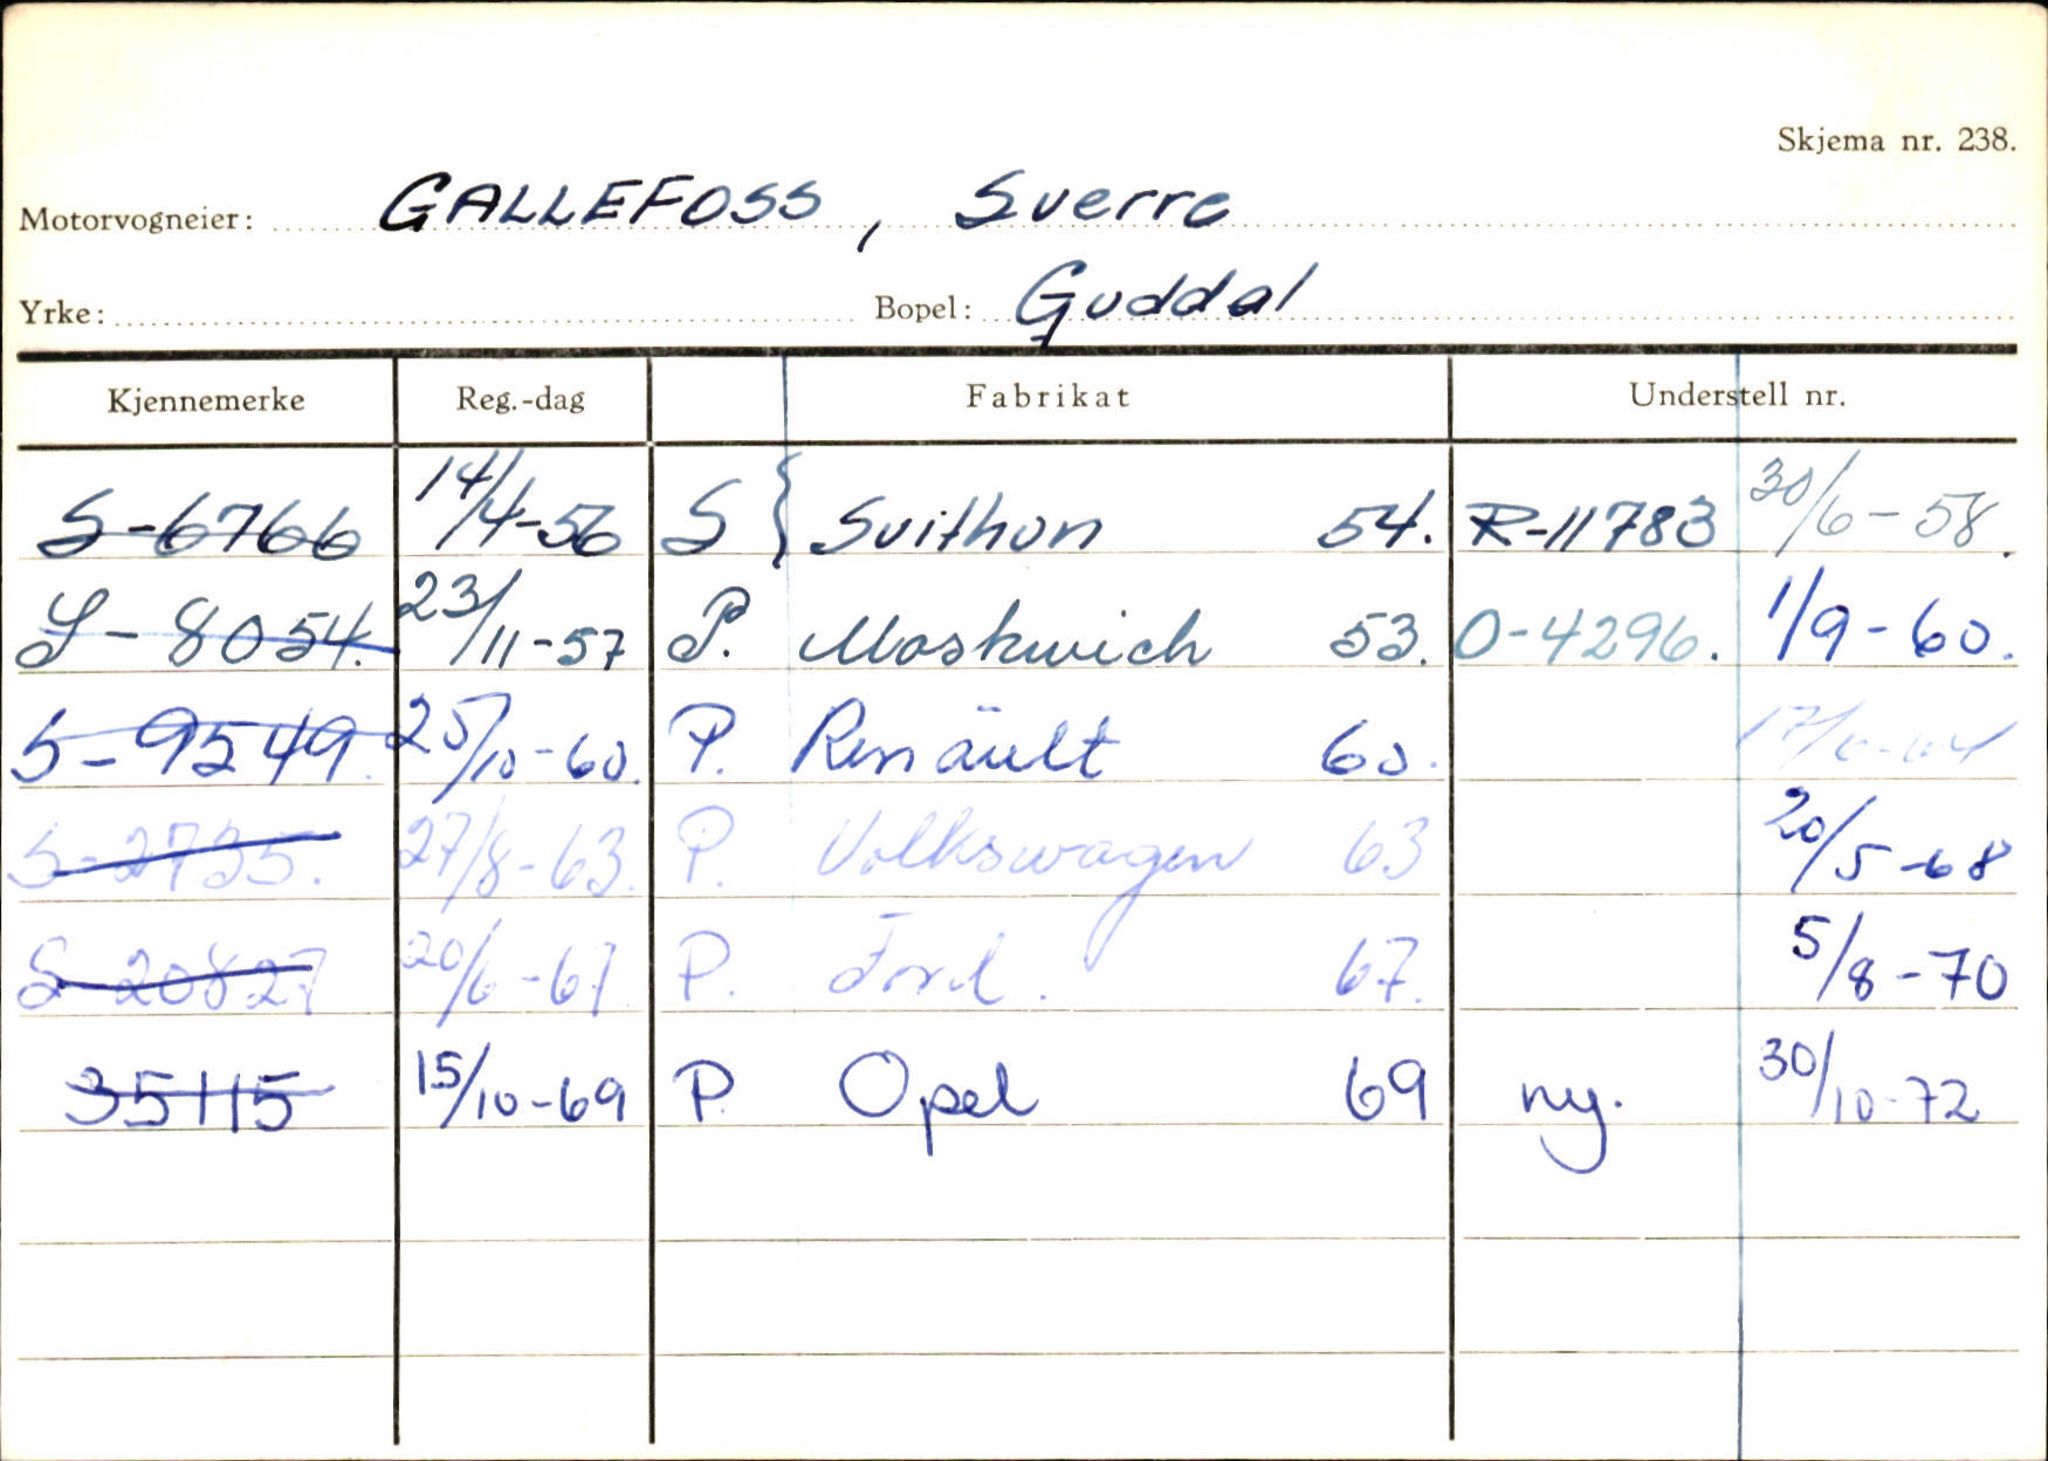 Skjema nr. 238.
Motorvogneier: GALLEFOSS, Sverre
Yrke: Bopel: Guddal
Kjennemerke Reg.-dag Fabrikat Understell nr.
S-6766 14/4-56 S { Svithun 54. R-11783 30/6-58.
S-8054. 23/11-57 P. Moskwich 53. O-4296. 1/9-60.
S-9549. 25/10-60. P. Renäult 60.
S-2735. 27/8-63. P. Volkswagen 63 20/5-68
S-20827 20/6-67 P. Ford. 67. 5/8-70
35115 15/10-69 P. Opel 69 ny. 30/10-72